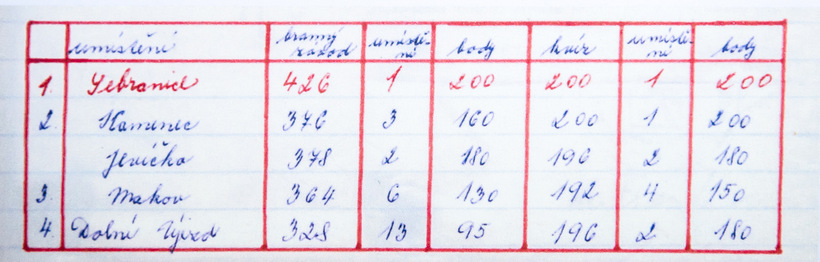 umístění branný závod umístě-ní body kvíz umístě-ní body
1. Sebranice 426 1 200 200 1 200
2. Kamenec 376 3 160 200 1 200
Jevíčko 378 2 180 196 2 180
3. Makov 364 6 130 192 4 150
4. Dolní Újezd 328 13 95 196 2 180